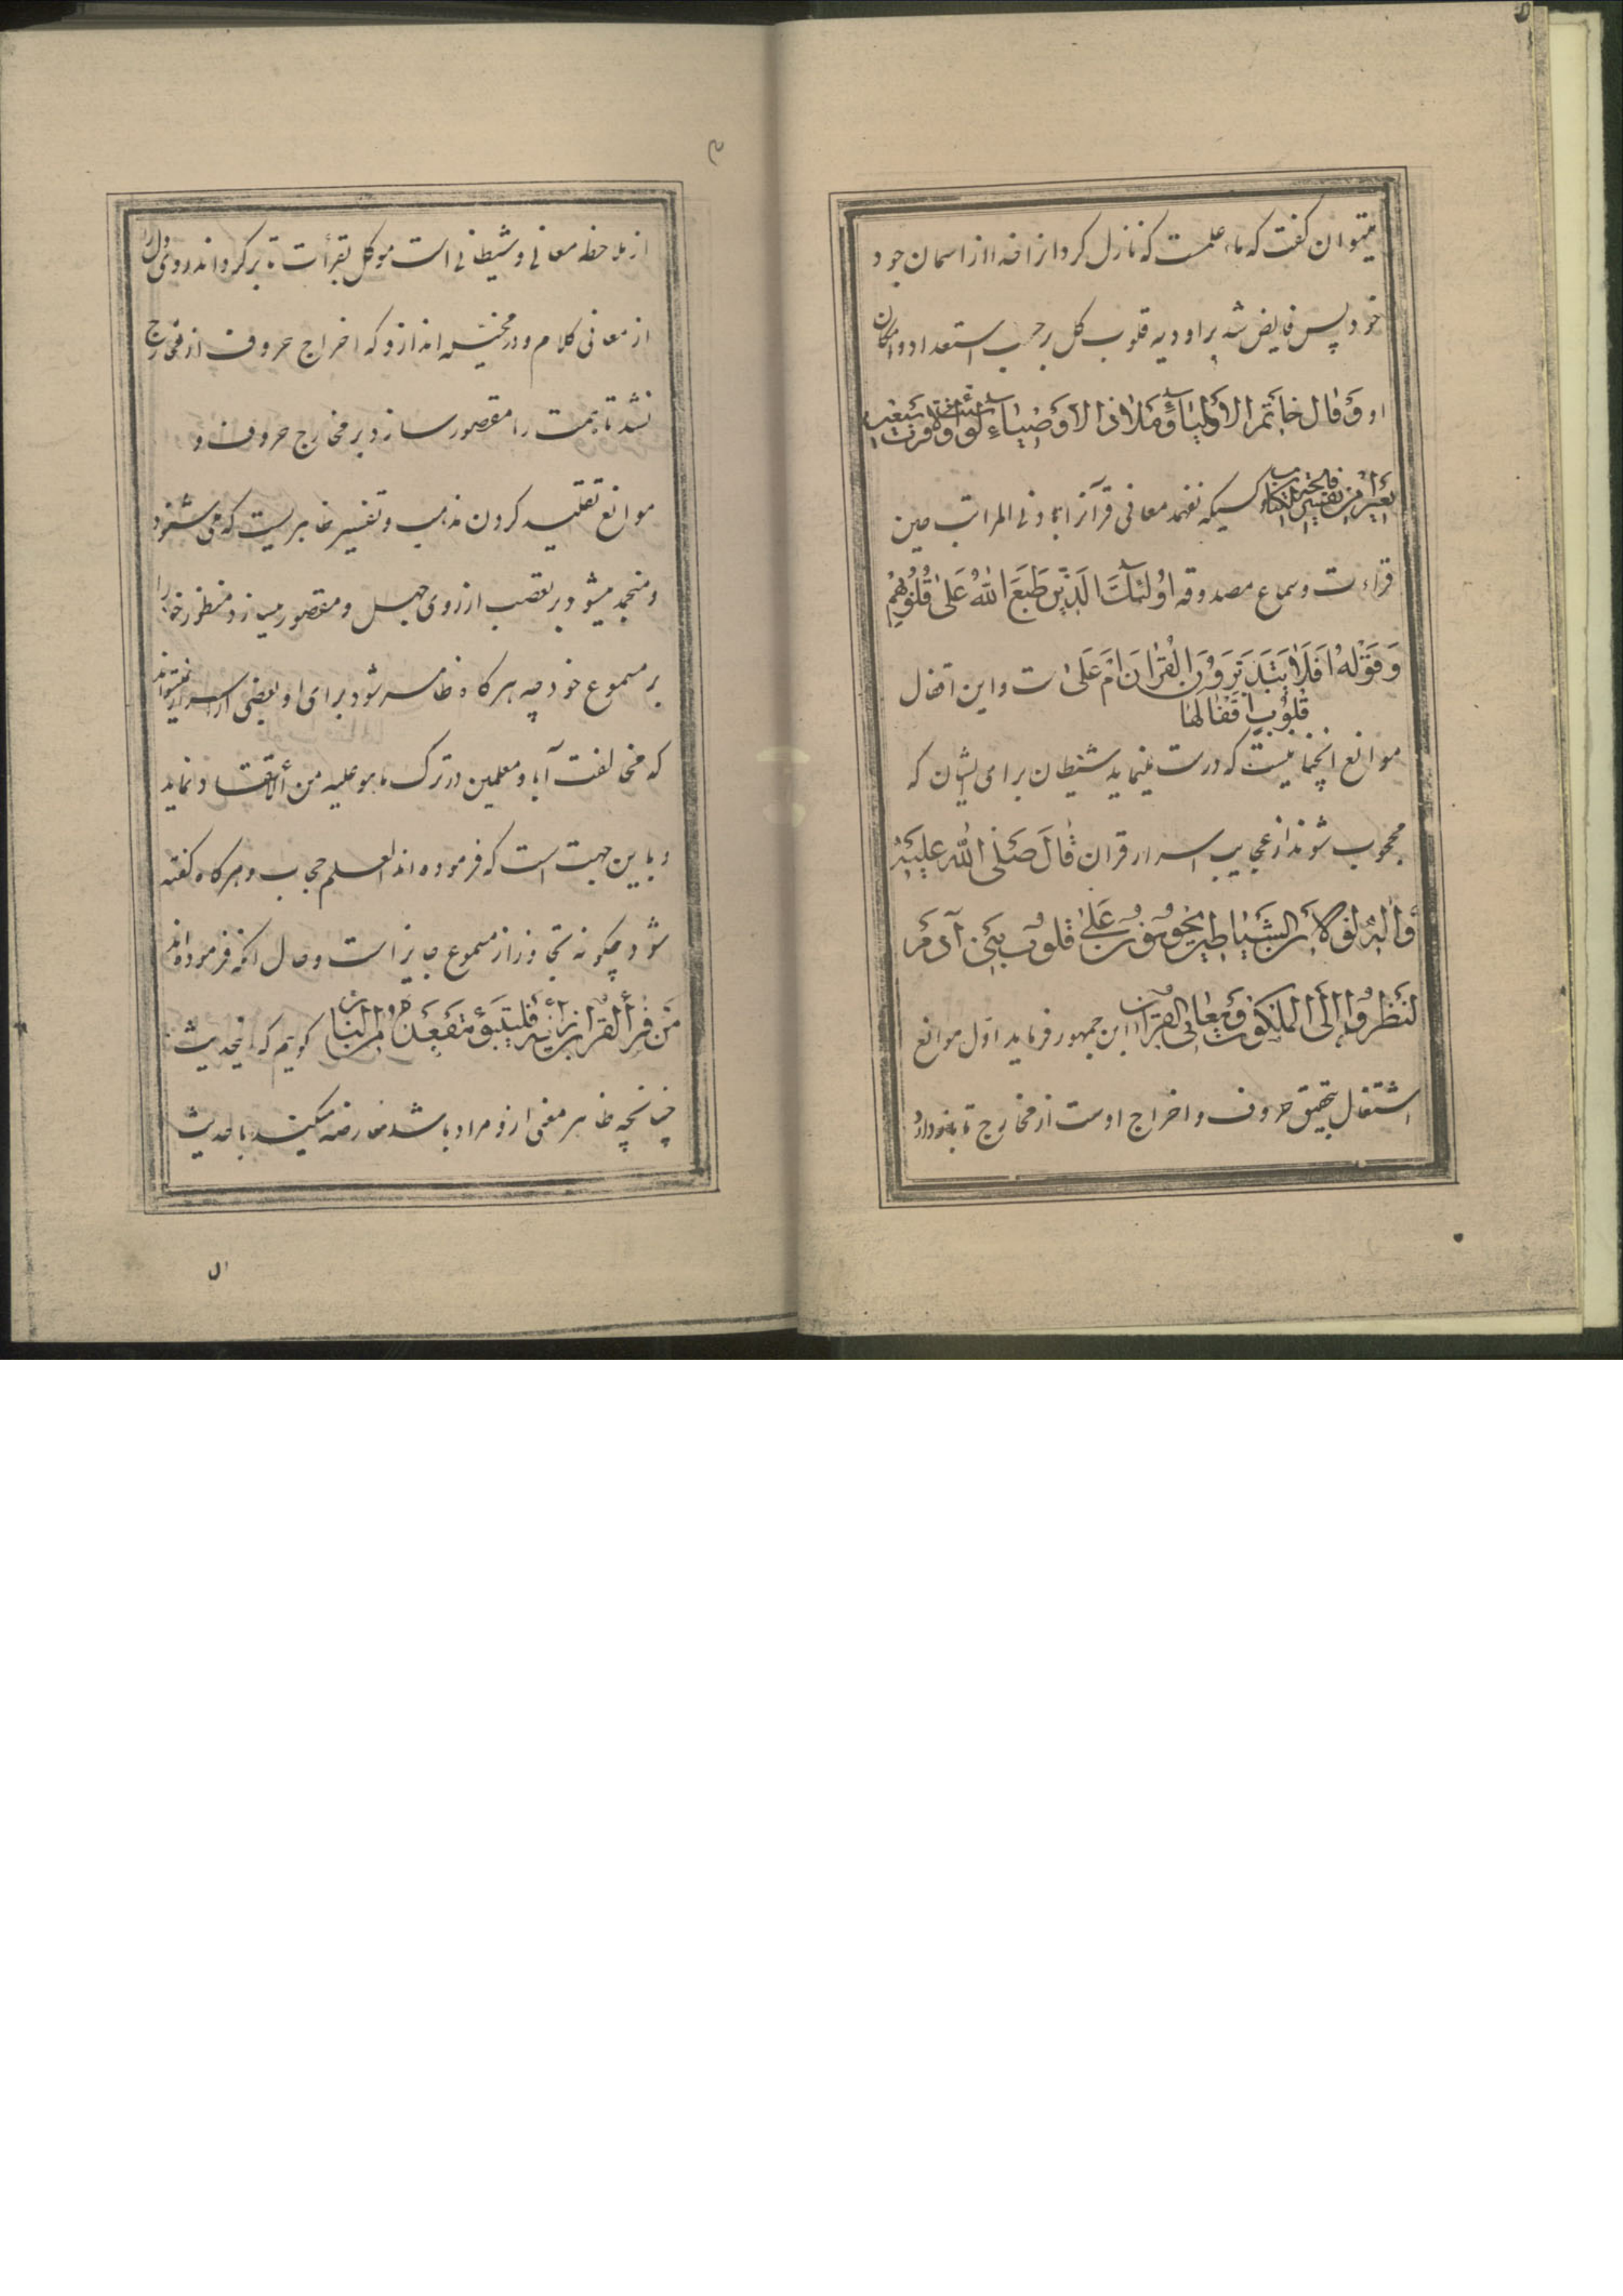 میتوان گفت که ماء علمست که نازل کرد از خدا از اسمان جود
خود پس فایض شد بر اودیه قلوب کل بر حسب استعداد و امکان
او وَقالَ خاتَمُ الاَولیاء وَمَلاذُ الاَوصِیاءِ لَو شِئتُ لَاَوقَرتُ سَبعین
بَعیراً مِن تَفسیرِ فاتِحَةِ الکِتاب کسیکه نفهمد معانی قرآنرا باَدنی المراتب حین
قراءت و سماع مصدوقه اُولئِكَ الَّذینَ طَبَعَ اللهُ عَلی قُلُوبِهِم
وَقَولُهُ اَفَلا یَتَدَبَّرُونَ القُرانَ اَم عَلی قُلُوبٍ اَقفالُها ست و این اقفال
موانع انچنانیست که درست مینماید شیطان برای ایشان که
محجوب شوند از عجایب اسرار قران قالَ صَلَّی اللهُ عَلَیهِ
وَالِهِ لَولا اَنَّ الشَّیاطینَ یَحُومُونَ عَلی قُلُوبِ بَنی آدَمَ
لَنَظَرُوا اِلَی المَلَکُوتِ وَمَعانِی القُرآن ابن جمهور فرماید اوّل موانع
اشتغال بتحقیق حروف و اخراج اوست از مخارج تا باز دارد
از ملاحظه معانی و شیطانی است موکل بقرأت تا برگرداند روی دل را
از معانی کلام و در مخیّله اندازد که اخراج حروف از مخارج
نشد تا همت را مقصور سازد بر مخارج حروف و
موانع تقلید کردن مذهب و تفسیر ظاهریست که می شنود
و منجمد میشود بر تعصب از روی جهل و مقصور میسازد منظور خود را
بر مسموع خود چه هر گاه ظاهر شود برای او بعضی از اسرار نمیتواند
که مخالفت آبا و معلمین در ترک ما هو علیه من الاعتقاد نماید
و باین جهت است که فرموده اند العلم حجاب و هر گاه گفته
شود چگونه تجاوز از مسموع جایز است و حال انکه فرموده اند
مَن فَسَّرَ القُرانَ بِرَأیِهِ فَلیَتَبَوَّء مَقعَدَهُ مِنَ النّار گویم که اینحدیث
چنانچه ظاهر معنی ازو مراد باشد معارضه میکند با حدیث
ال